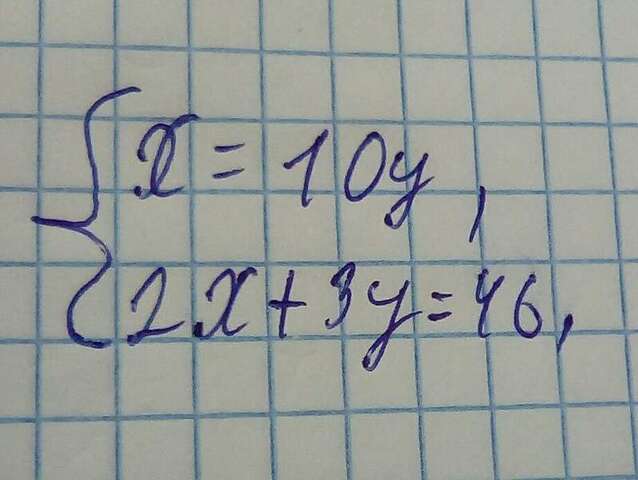 x = 10y,
2x + 3y = 46,